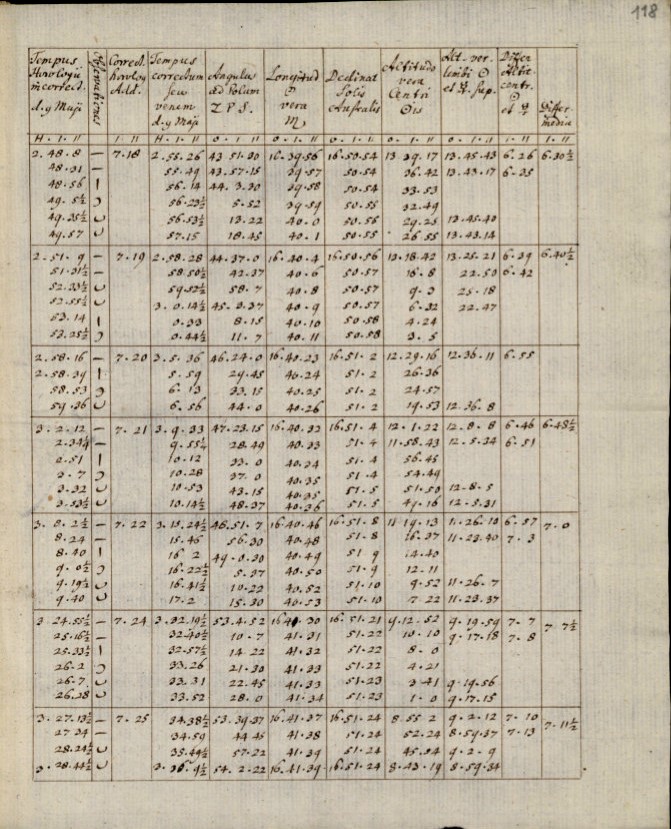 118
Tempus Horologii incorrect. d. 9 Maji | Observationes | Correct. horolog Add. | Tempus correctum seu verum d. 9 Maji | Angulus ad Polum Z P S. | Longitud ☉ vera | Declinat Solis Australis | Altitudo vera Centri ☉is | Alt. ver. limbi ☉ | Differ Altit. centr. ☉ | Differ. media
H . I . II | I . II | H . I . II | 0 . I . II | 0 . I . II | 0 . I . II | 0 . I . II | 0 . I . II | I . II | I . II
2. 48. 8 — 7. 18 2. 55. 26 43 51. 30 16. 39. 56 16. 50. 54 13 39. 17 13. 45. 43 6. 26 6. 30½
48. 31 — 55. 49 43. 57. 15 39. 57 50. 54 36. 42 13. 43. 17 6. 35
48. 56 | 56. 14 44. 3. 30 39. 58 50. 54 33. 53
49. 5½ 56. 23½ 5. 52 39. 59 50. 55 32. 49
49. 35½ 56. 53½ 13. 22 40. 0 50. 55 29. 25 13. 45. 40
49. 57 57. 15 18. 45 40. 1 50. 55 26. 55 13. 43. 14
2. 51. 9 — 7. 19 2. 58. 28 44. 37. 0 16. 40. 4 16. 50. 56 13. 18. 42 13. 25. 21 6. 39 6. 40½
51. 31½ — 58. 50½ 42. 37 40. 6 50. 57 16. 8 22. 50 6. 42
52. 33½ 59. 52½ 58. 7 40. 8 50. 57 9. 3 25. 18
52. 55½ 3. 0. 14½ 45. 3. 37 40. 9 50. 57 6. 32 22. 47
53. 14 | 0. 33 8. 15 40. 10 50. 58 4. 24
53. 25½ 0. 44½ 11. 7 40. 11 50. 58 3. 5
2. 58. 16 — 7. 20 3. 5. 36 46. 24. 0 16. 40. 23 16. 51. 2 12. 29. 16 12. 36. 11 6. 55
2. 58. 39 | 5. 59 29. 45 40. 24 51. 2 26. 36
58. 53 6. 13 33. 15 40. 25 51. 2 24. 57
59. 36 6. 56 44. 0 40. 26 51. 2 19. 53 12. 36. 8
3. 2. 12 — 7. 21 3. 9. 33 47. 23. 15 16. 40. 32 16. 51. 4 12. 1. 22 12. 8. 8 6. 46 6. 48½
2. 34¼ — 9. 55¼ 28. 49 40. 33 51. 4 11. 58. 43 12. 5. 34 6. 51
2. 51 | 10. 12 33. 0 40. 34 51. 4 56. 45
3. 7 10. 28 37. 0 40. 35 51. 4 54. 49
3. 32 10. 53 43. 15 40. 35 51. 5 51. 50 12. 8. 5
3. 53½ 10. 14½ 48. 37 40. 36 51. 5 49. 16 12. 5. 31
3. 8. 2½ — 7. 22 3. 15. 24½ 48. 51. 7 16. 40. 46 16. 51. 8 11. 19. 13 11. 26. 10 6. 57 7. 0
8. 24 — 15. 46 56. 30 40. 48 51. 8 16. 37 11. 23. 40 7. 3
8. 40 | 16 2 49. 0. 30 40. 49 51. 9 14. 40
9. 0½ 16. 22½ 5. 37 40. 50 51. 9 12. 11
9. 19½ 16. 41½ 10. 22 40. 52 51. 10 9. 52 11. 26. 7
9. 40 17. 2 15. 30 40. 53 51. 10 7. 22 11. 23. 37
3. 24. 55½ — 7. 24 3. 32. 19½ 53. 4. 52 16. 41. 30 16. 51. 21 9. 12. 52 9. 19. 59 7. 7 7. 7½
25. 16½ — 32. 40½ 10. 7 41. 31 51. 22 10. 10 9. 17. 18 7. 8
25. 33½ | 32. 57½ 14. 22 41. 32 51. 22 8. 0
26. 2 33. 26 21. 30 41. 33 51. 22 4. 21
26. 7 33. 31 22. 45 41. 33 51. 23 3 41 9. 19. 56
26. 28 33. 52 28. 0 41. 34 51. 23 1. 0 9. 17. 15
3. 27. 13½ — 7. 25 34. 38½ 53. 39. 37 16. 41. 37 16. 51. 24 8. 55. 2 9. 2. 12 7. 10 7. 11½
27 34 — 34. 59 44 45 41. 38 51. 24 52. 24 8. 59. 37 7. 13
28. 24½ 35. 49½ 57. 22 41. 39 51. 24 45. 54 9. 2. 9
3. 28. 44½ 3. 36. 9½ 54. 2. 22 16. 41. 39 16. 51. 24 8. 43. 19 8. 59. 34